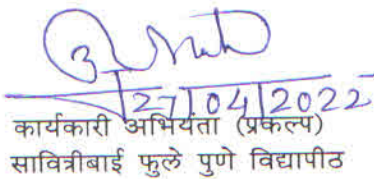 27/04/2022
कार्यकारी अभियंता (प्रकल्प)
सावित्रीबाई फुले पुणे विद्यापीठ